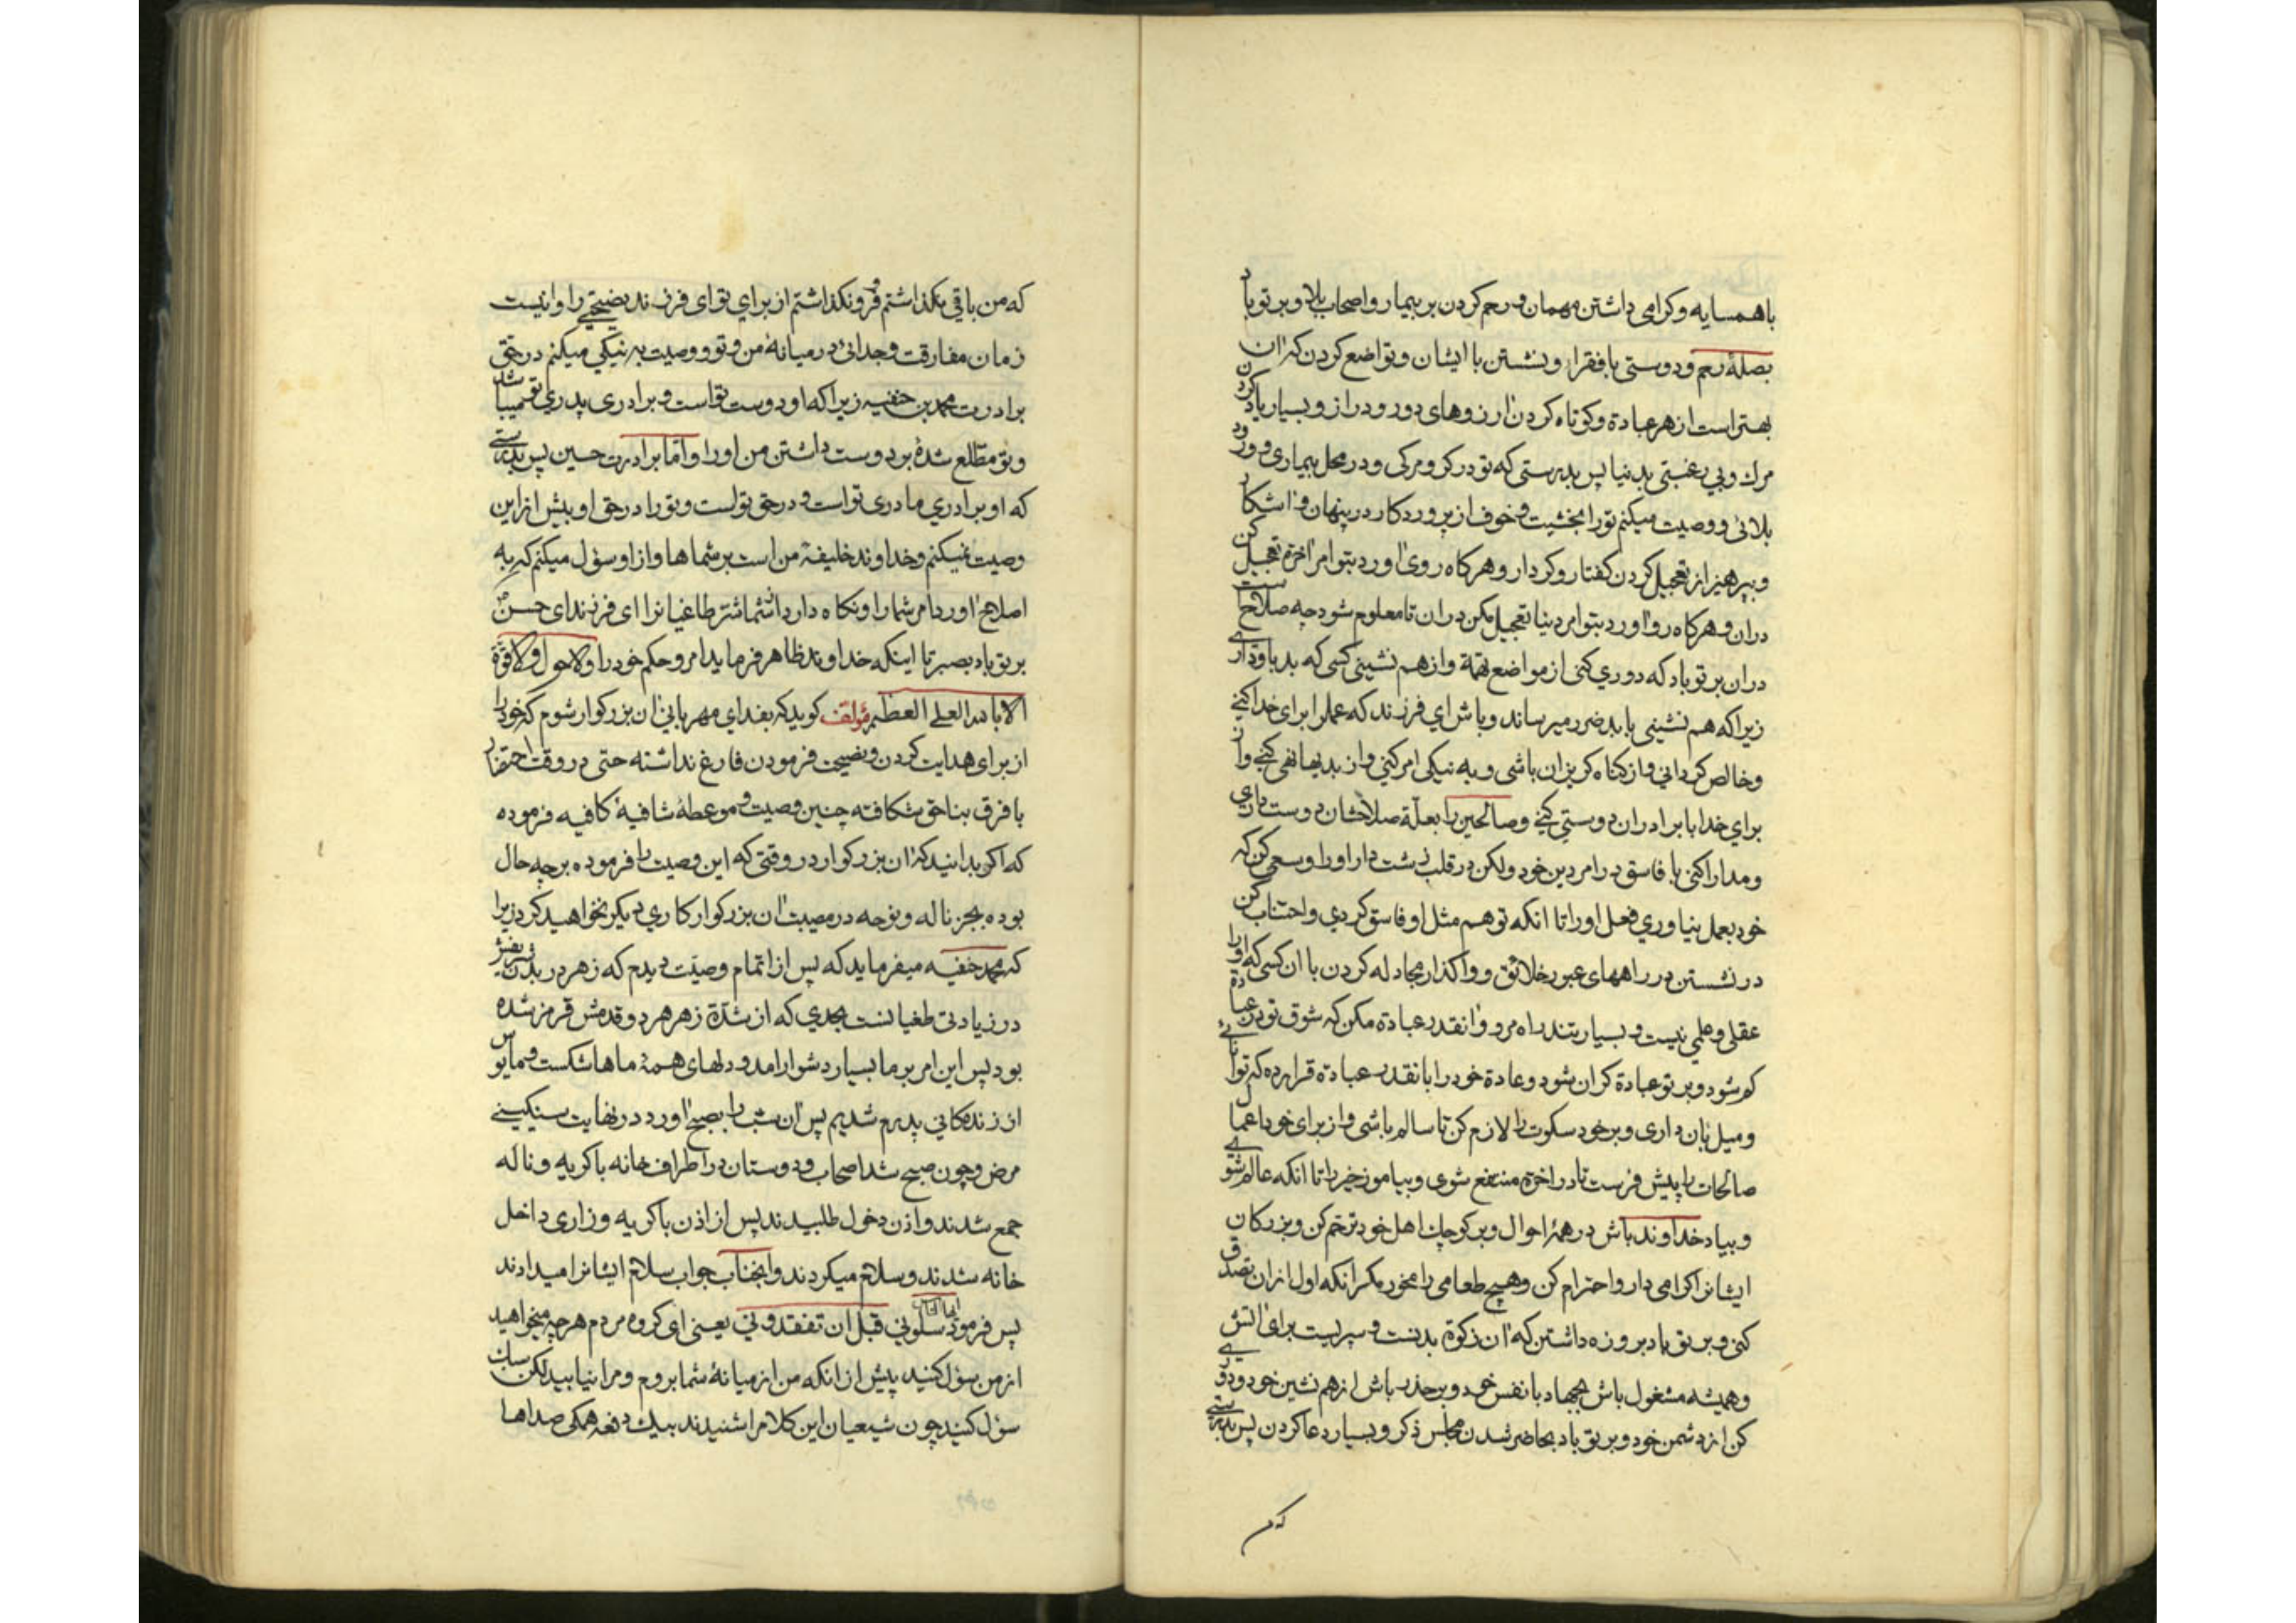 باهمسایه وکرامی داشتن مهمان ورحم کردن بر بیمار واصحاب بلا وبر توباد
بصلهٔ رحم ودوستی بافقرا ونشستن با ایشان وتواضع کردن که ان
بهتراست ازهرعبادة وکوتاه کردن ارزوهای دور ودراز وبسیار یادکردن
مرك وبی رغبتی بدنیا پس بدرستی که تو در کرو مرکی ودر محل بیماری وورود
بلائی ووصیت میکنم تورا بخشیت وخوف از پروردکار در پنهان واشکار
وبپرهیز از تعجیل کردن کفتار وکردار وهرکاه روی اورد بتو امر اخرة تعجیل کن
دران وهرکاه رو اورد بتو امر دنیا تعجیل مکن دران تا معلوم شود چه صلاحست
دران بر تو باد که دوری کنی از مواضع تهمة وازهم نشینی کسی که بد باو داری
زیراکه هم نشینی با بد ضرر میرساند وباش ای فرزند که عمل را برای خدا کنی
وخالص کردانی واز کناه کریزان باشی وبه نیکی امر کنی واز بدیها نهی کنی واز
برای خدا با برادران دوستی کنی وصالحین را بعلة صلاحشان دوست داری
ومدارا کنی با فاسق در امر دین خود ولکن در قلب زشت دار اورا وسعی کن که
خود بعمل نیاوری فعل اورا تا انکه تو هم مثل او فاسق کردی واجتناب کن
در نشستن در راههای عبور خلائق وواکذار مجادله کردن با ان کسی که اورا
عقلی وعلمی نیست وبسیار بتند راه مرو وانقدر عبادة مکن که شوق تو در عبادة
کم شود وبر تو عبادة کران شود وعادة خود را بانقدر عبادة قرار ده که توانائی
ومیل بان داری وبر خود سکوت را لازم کن تا سالم باشی واز برای خود اعمال
صالحات را پیش فرست تا در اخرة منتفع شوی وبیاموز خیر را تا انکه عالم شوی
وبیاد خداوند باش در همهٔ احوال وبر کوچك اهل خود ترحم کن وبزرکان
ایشانرا کرامی دار واحترام کن وهیچ طعامی را مخور مکر انکه اول ازان تصدق
کنی وبر تو باد بروزه داشتن که ان زکوة بدنست وسپریست برای اتش
وهمیشه مشغول باش بجهاد با نفس خود وبر حذر باش از هم نشین خود ودوری
کن از دشمن خود وبر تو باد بحاضر شدن مجلس ذکر وبسیار دعا کردن پس بدرستی
که من
که من باقی نکذاشتم وفرو نکذاشتم از برای تو ای فرزند نصیحتی را واینست
زمان مفارقت وجدائی در میانهٔ من وتو ووصیت به نیکی میکنم در حق
برادرت محمد بن حنفیه زیرا که او دوست تو است وبرادری پدری تو میباشد
وتو مطلع شدهٔ بر دوست داشتن من اورا واما برادرت حسین پس بدرستی
که او برادری مادری تو است ودر حق تو است وتورا در حق او بیش از این
وصیت نمیکنم وخداوند خلیفهٔ من است بر شماها واز او سؤل میکنم که به
اصلاح اورد امر شما را ونکاه دارد از شما شر طاغیانرا ای فرزند ای حسن
بر تو باد بصبر تا اینکه خداوند ظاهر فرماید امر وحکم خود را ولا حول ولا قوة
الا بالله العلی العظیم مؤلف کوید که بفدای مهربانی ان بزرکوار شوم که خود را
از برای هدایت کردن ونصیحت فرمودن فارغ نداشته حتی در وقت احتضار
با فرق بناحق شکافته چنین وصیت وموعظهٔ شافیهٔ کافیه فرموده
که اکر بدانید که ان بزرکوار در وقتی که این وصیت را فرموده برچه حال
بوده بجز ناله ونوحه در مصیبت ان بزرکوار کاری دیکر نخواهید کرد زیرا
که محمد حنفیه میفرماید که پس از اتمام وصیت دیدم که زهر در بدن شریفش
در زیادتی طغیانست بحدی که از شدة زهر هر دو قدمش قرمز شده
بود پس این امر بر ما بسیار دشوار امد ودلهای همهٔ ماها شکست ومایوس
از زندکانی پدرم شدیم پس ان شب را بصبح اورد در نهایت سنکینی
مرض وچون صبح شد اصحاب ودوستان در اطراف خانه با کریه وناله
جمع شدند واذن دخول طلبیدند پس از اذن با کریه وزاری داخل
خانه شدند وسلام میکردند وانجناب جواب سلام ایشانرا میدادند
پس فرمود ایها الناس سلونی قبل ان تفقدونی یعنی ای کروه مردم هر چه میخواهید
از من سؤل کنید پیش از انکه من از میانهٔ شما بروم ومرا نیابید لکن سبك
سؤل کنید چون شیعیان این کلام را شنیدند بیك دفعه همکی صداها